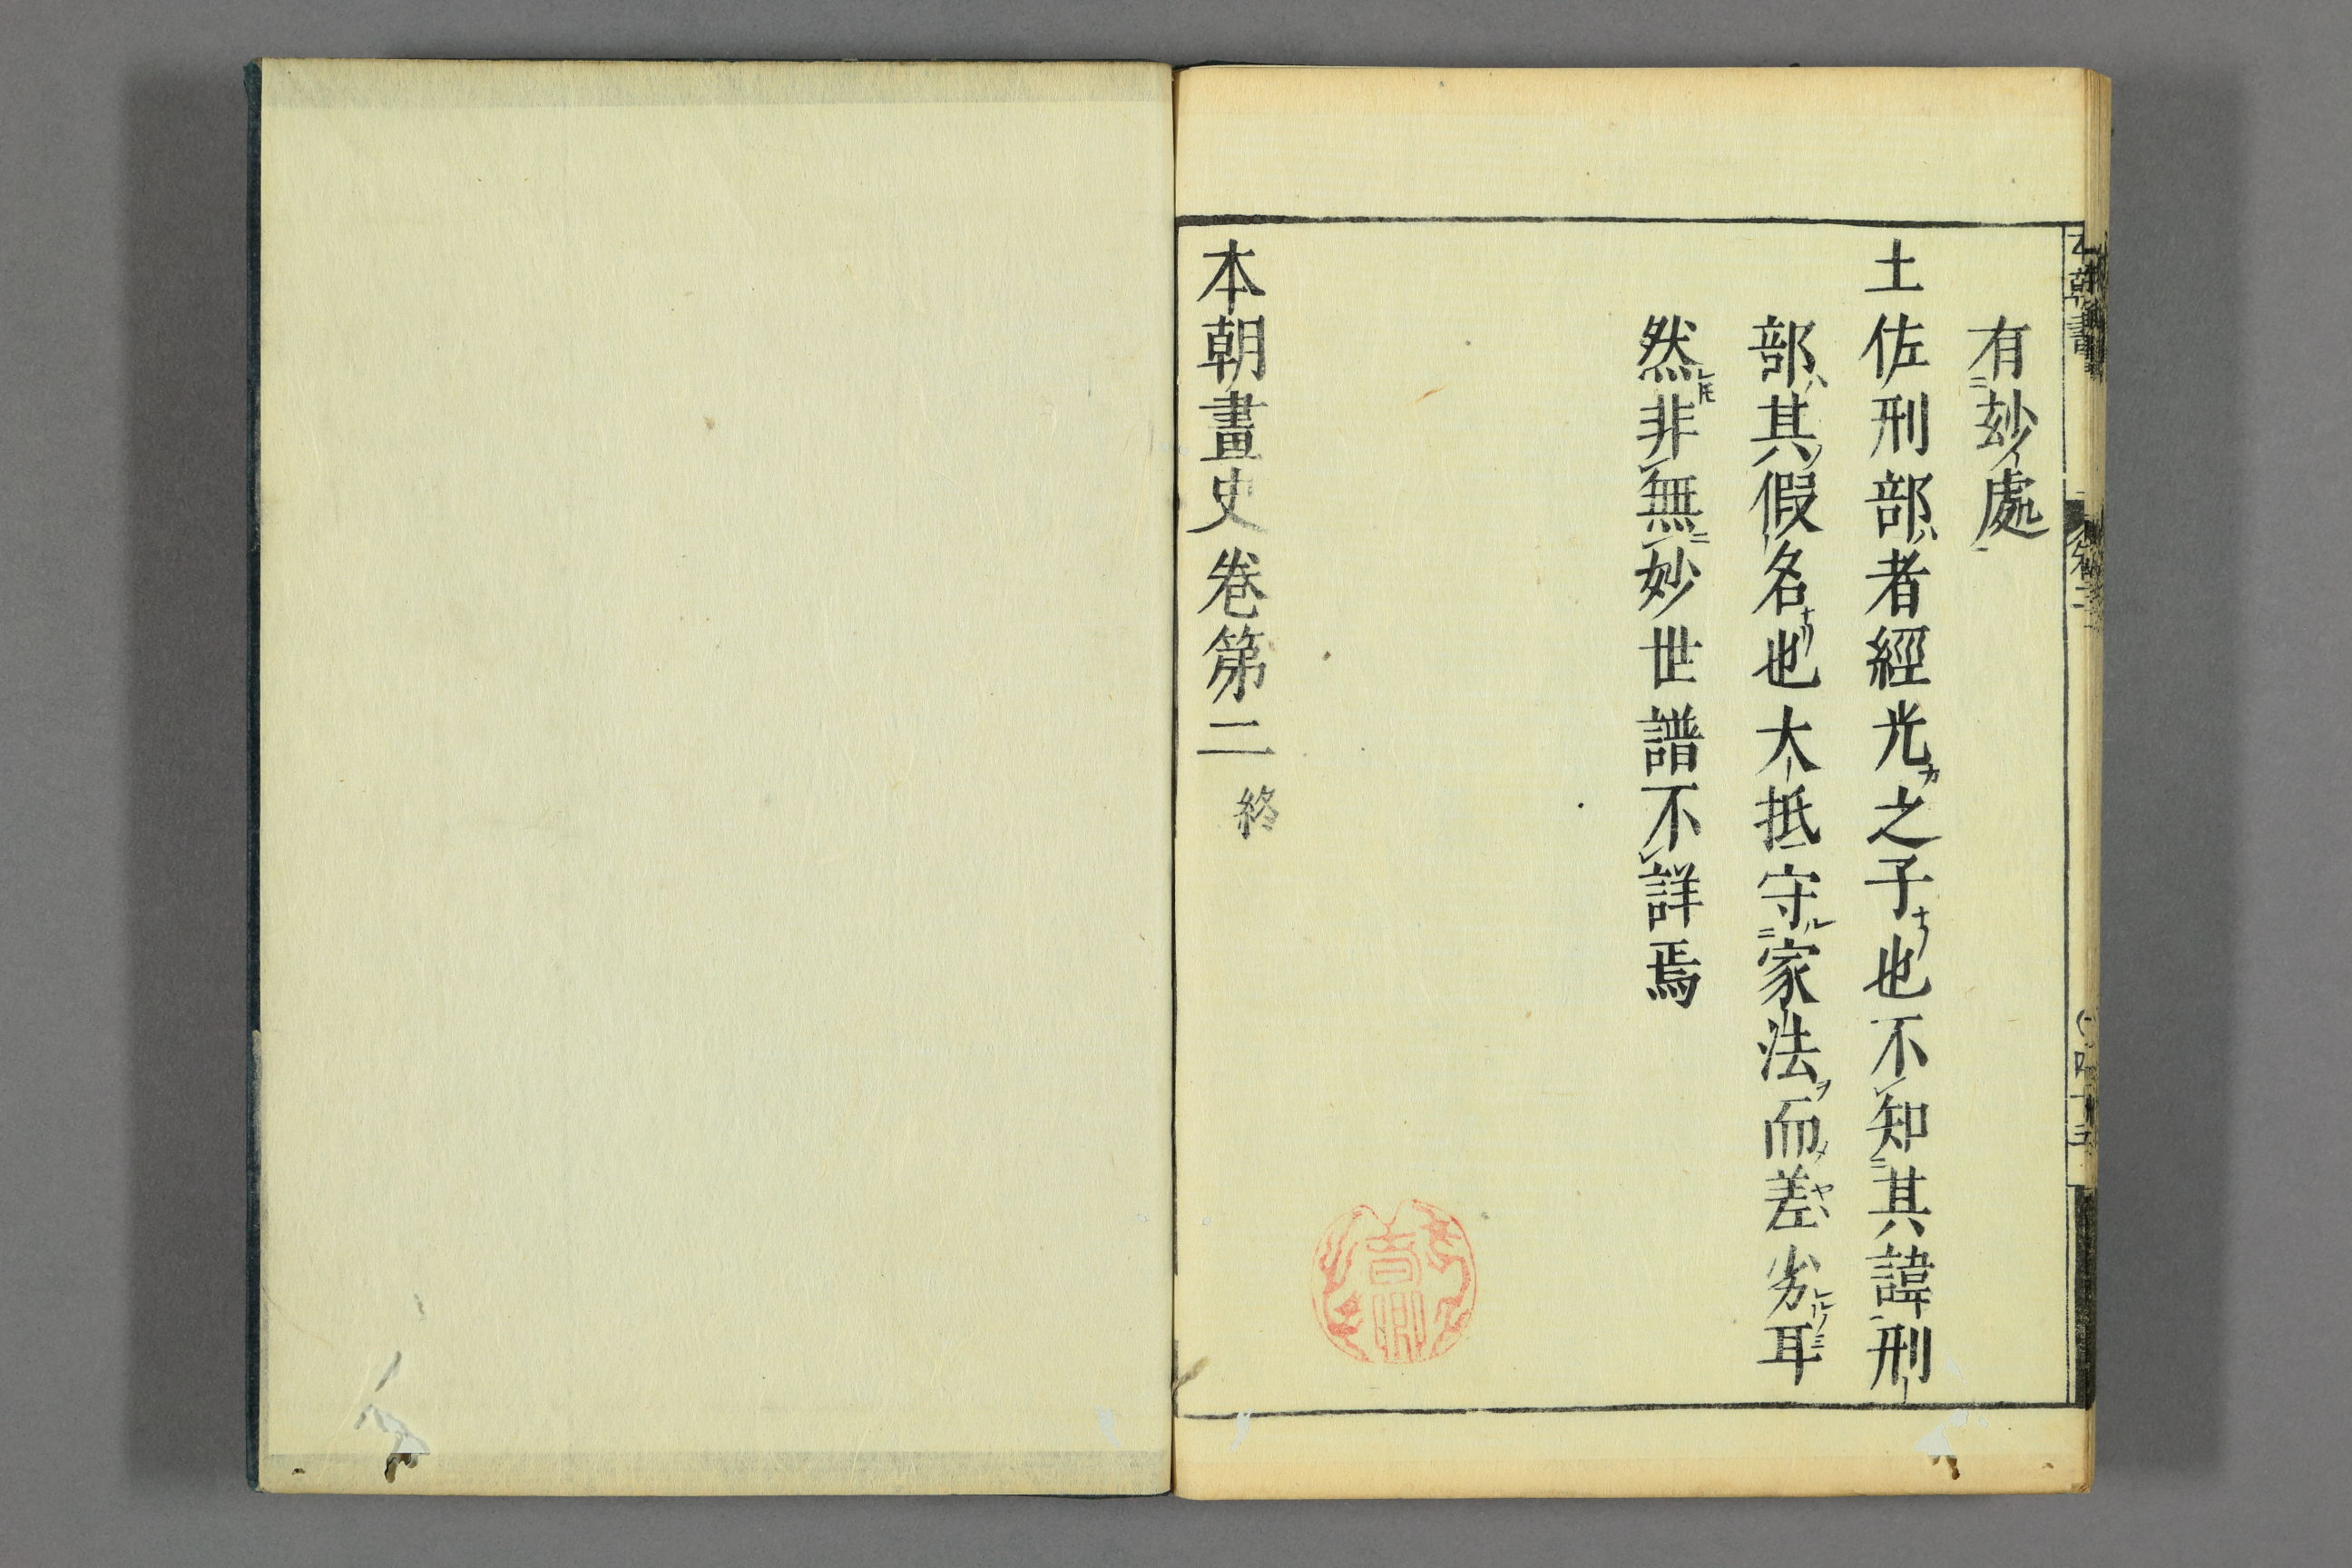 有玅處
土佐刑部者經光之子也不知其諱刑
部其假名也大抵守家法而差劣耳
然非無妙世譜不詳焉
本朝畫史卷第二 終